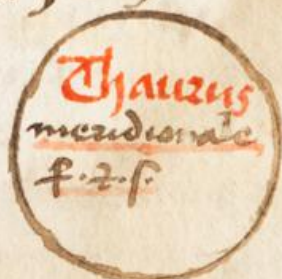 Thaurus
meridionale
f. z. s.